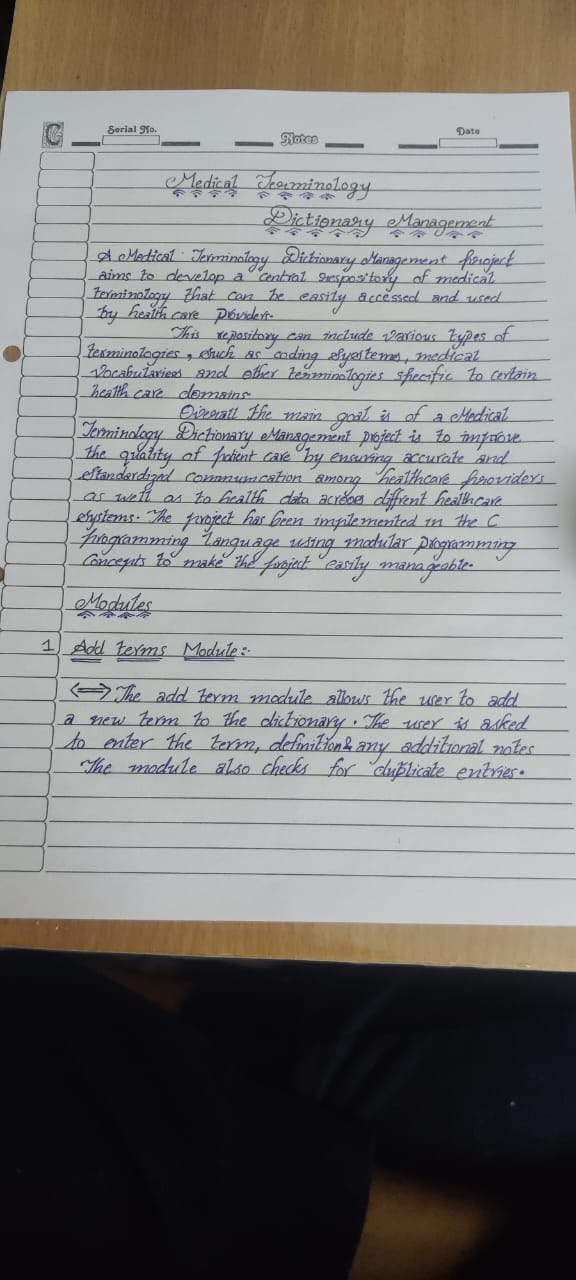 Serial No.
Notes
Date
Medical Terminology
Dictionary Management
A Medical Terminology Dictionary Management Project
aims to develop a central respository of medical
terminology that can be easily accessed and used
by health care Providers.
This repository can include various types of
terminologies, such as coding systems, medical
vocabularies and other terminologies specific to certain
health care domains
Overall the main goal is of a Medical
Terminology Dictionary Management project is to improve
the quality of patient care by ensuring accurate and
standardized communication among healthcare providers
as well as to health data across diffrent healthcare
systems. The project has been implemented in the C
programming language using modular programming
Concepts to make the project easily manageable.
Modules
1 Add terms Module:-
⟺ The add term module allows the user to add
a new term to the dictionary. The user is asked
to enter the term, definition & any additional notes
The module also checks for duplicate entries.